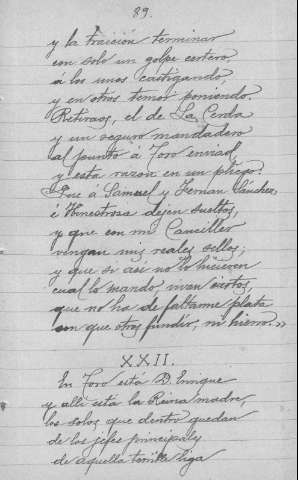 89.
y la traición terminar
con solo un golpe certero,
á los unos castigando,
y en otros temor poniendo.
Retiraos, el de La Cerda
y un seguro mandadero
al punto á Toro enviad
y esta razón en un pliego:
Que á Samuel y Fernan Sánchez,
é Hinestrosa dejen sueltos,
y que con mi Canciller
vengan mis reales sellos;
y que si así no lo hicieren
cual lo mando, vivan ciertos,
que no ha de faltarme plata
con que otros fundir, ni hierro.»
XXII.
En Toro está D. Enrique
y allí está la Reina madre,
los solos que dentro quedan
de los jefes principales
de aquella terrible liga